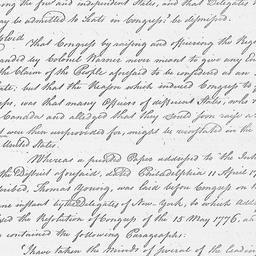 ing the free and independent States, and that Delegates
ay be admitted to Seats in Congress be dismissed.
solved
That Congress by raising and officering the Reg
manded by Colonel Warner never meant to give any
the Claim of the People aforesaid to be considered as an
ate; but that the Reason which induced Congress to
ps, was that many Officers of different States, who
Canada and alleged that they could soon raise a
but were then unprovided for, might be reinstated in the
United States.
Whereas a printed Paper addressed to the Inh
the District aforesaid, dated Philadelphia 11 April 17
cribed, Thomas Young, was laid before Congress on
one instant by the Delegates of New-York, to which Addre
ed the Resolution of Congress of the 15 May 1776, a
contained the following Paragraphs:
"I have taken the Minds of several of the leadin